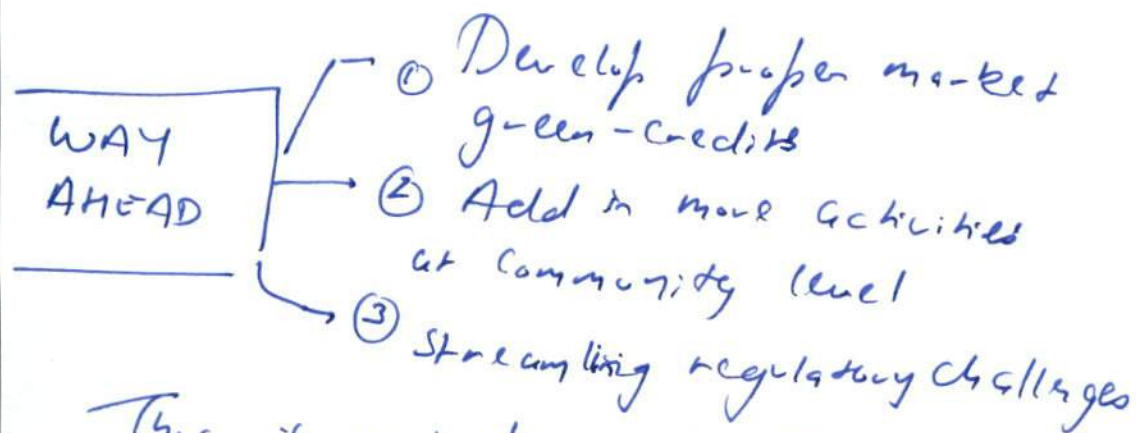 WAY
AHEAD
① Develop proper market
green-credits
② Add in more activities
at community level
③ Streamlining regulatory challenges